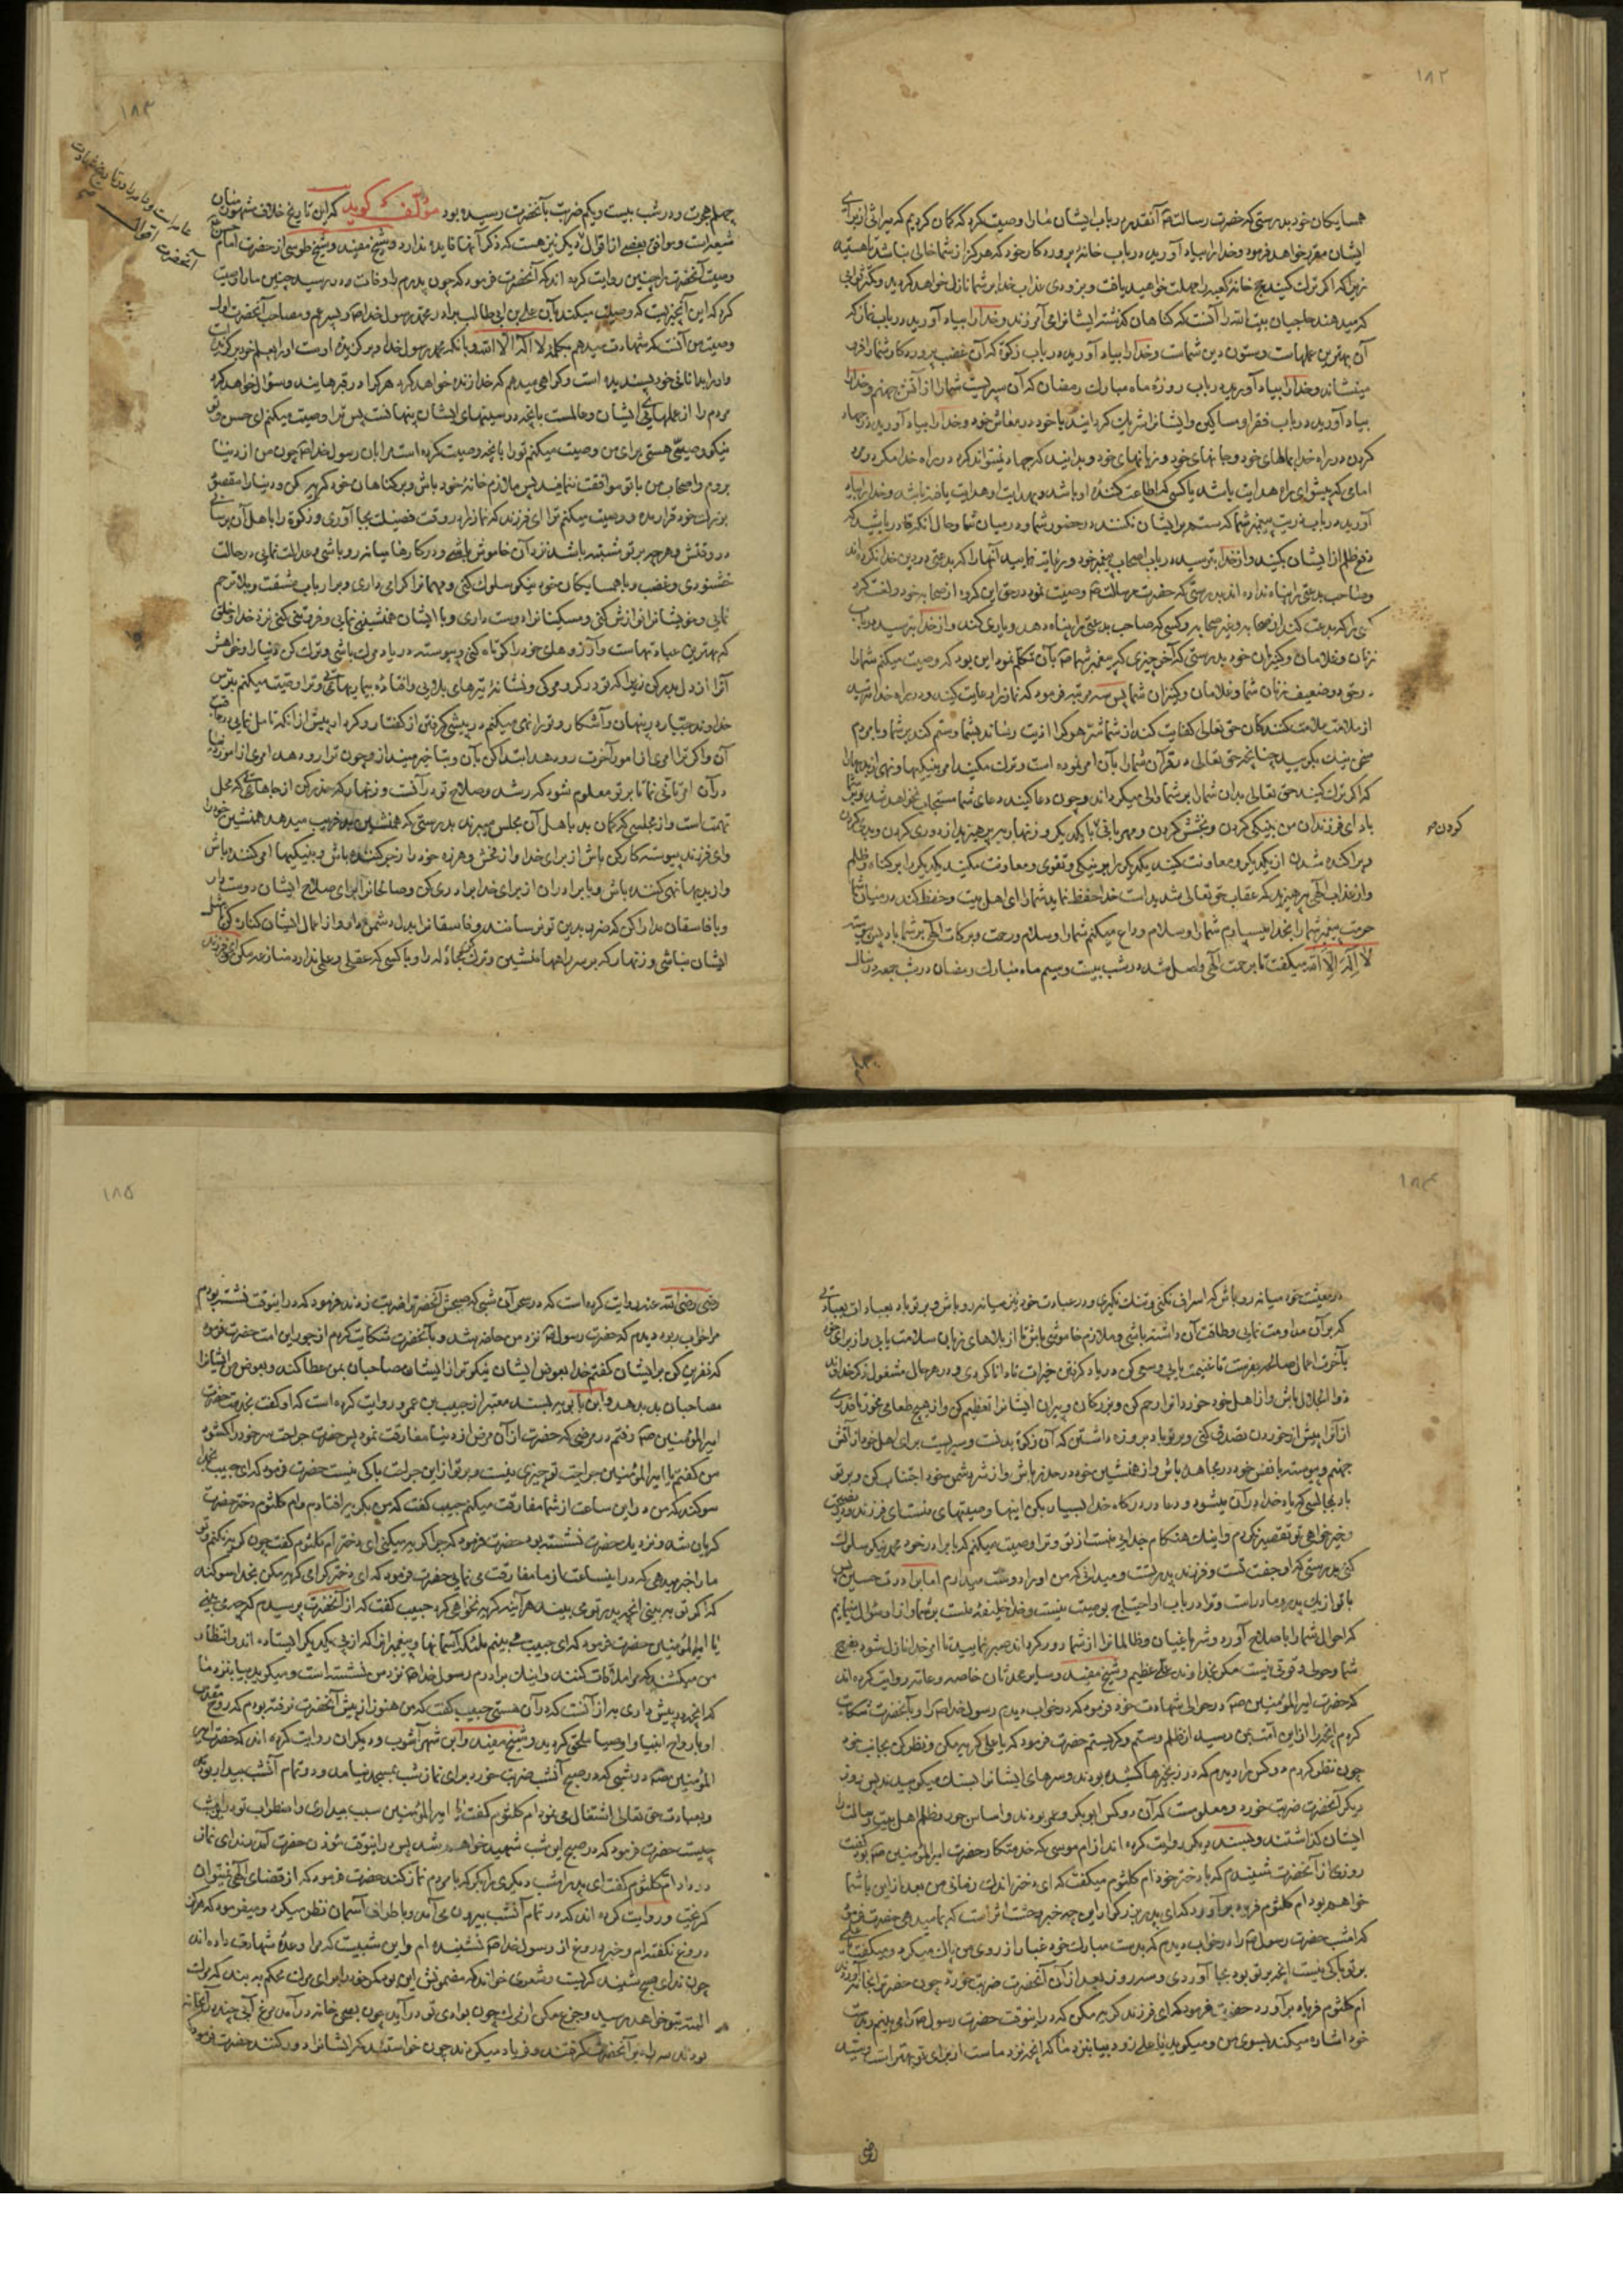 ۱۸۲
همسایکان خود بدرستی که حضرت رسالت آنقدر در باب ایشان مارا وصیت کرد که کمان کردیم که میراثی از برای
ایشان مقرر خواهد فرمود وخدا را بیاد آورید در باب خانهٔ پروردکار خود که هرکز از شما خالی نباشد تا هستید
زیرا که اکر ترک کنید حج خانه کعبه را مهلت نخواهید یافت و بزودی عذاب خدا بر شما نازل خواهد کردید
که میدهند حاجیان بیت الله را آنست که کناهان کذشته ایشانرا می آمرزند وخدا را بیاد آورید در باب نماز که
آن بهترین عملهاست وستون دین شماست وخدا را بیاد آورید در باب زکوة که آن غضب پروردکار شما را فرو
مینشاند وخدا را بیاد آورید در باب روزهٔ ماه مبارک رمضان که آن سپریست شما را از آتش جهنم وخدا را
بیاد آورید در باب فقرا ومساکین وایشانرا شریک کردانید با خود در معاش خود وخدا را بیاد آورید در جهاد
کردن در راه خدا بمالهای خود وجانهای خود وزبانهای خود وبدانید که جهاد نمیتواند کرد در راه خدا مکر دو مرد
امامی که پیشوای راه هدایت باشد یا کسی که اطاعت کنندهٔ او باشد وبهدایت او هدایت یافته باشد وخدا را بیاد
آورید در باب ذریت پیغمبر شما که ستم بر ایشان نکنند در حضور شما ودر میان شما وحال آنکه قادر باشید که
دفع ظلم از ایشان بکنید واز خدا بترسید در باب اصحاب پیغمبر خود ورعایت نمایید آنها را که بدعتی در دین خدا نکرده اند
وصاحب بدعتی را پناه نداده اند بدرستی که حضرت رسالت وصیت نمود در حق این کروه از صحابه خود ولعنت کرد
کسی را که بدعت کند از صحابه وغیر صحابه وکسی که صاحب بدعتی را پناه دهد ویاری کند واز خدا بترسید در باب
زنان وغلامان وکنیزان خود بدرستی که آخر چیزی که پیغمبر شما بآن تکلم نمود این بود که وصیت میکنم شما را
در حق دو ضعیف زنان شما وغلامان وکنیزان شما پس سه مرتبه فرمود که نماز را رعایت کنید ودر راه خدا مترسید
از ملامت ملامت کنندکان حق تعالی کفایت کند از شما شر هر که را اذیت رساند بشما وستم کند بر شما وبا مردم
سخن نیک بکویید چنانچه حق تعالی در قرآن شما را بآن امر نموده است وترک مکنید امر بنیکیها ونهی از بدیها را
که اکر ترک کنید حق تعالی بدان شما را بر شما والی میکرداند وچون دعا کنید دعای شما مستجاب نخواهد شد وبر شما
باد ای فرزندان من بنیکی کردن وبخشش کردن ومهربانی با یکدیکر وزنهار بپرهیزید از دوری کردن وبدی کردن
وپراکنده شدن از یکدیکر ومعاونت کنید یکدیکر را بر نیکی وتقوی ومعاونت مکنید یکدیکر را بر کناه وظلم
واز عذاب الهی بپرهیزید که عقاب حق تعالی شدید است خدا حفظ نماید شما را ای اهل بیت وحفظ کند در میان شما
حرمت پیغمبر شما را بخدا میسپارم شما را وسلام وداع میکنم شما را وسلام ورحمت وبرکات الهی بر شما باد پس پیوسته
لا اله الا الله میکفت تا برحمت الهی واصل شد در شب بیست وسیم ماه مبارک رمضان در شب جمعه در سال
کردن ص
۱۸۳
چهلم هجرت ودر شب بیست ویکم ضربت بآنحضرت رسیده بود مؤلف کوید که این تاریخ خلاف مشهور میان
شیعه است وموافق بعضی از اقوال دیکر نیز هست که ذکر آنها فایده ندارد وشیخ مفید وشیخ طوسی از حضرت امام حسن
وصیت آنحضرت را چنین روایت کرده اند که آنحضرت فرمود که چون پدرم را وفات در رسید چنین مارا وصیت
کرد که این آنچیزیست که وصیت میکند بآن علی بن ابی طالب برادر محمد رسول خدا وپسر عم ومصاحب آنحضرت اول
وصیت من آنست که شهادت میدهم بیکانکی لا اله الا الله وبانکه محمد رسول خدا وبرکزیده اوست او را بعلم خود برکزیده
واو را بدانائی خود پسندیده است وکواهی میدهم که خدا زنده خواهد کرد هر که را در قبرهایند وسؤال خواهد کرد
مردم را از عملهای ایشان وعالمست بانچه در سینهای ایشان پنهانست پس ترا وصیت میکنم ای حسن وتو
نیکو وصیتی هستی برای من وصیت میکنم تو را بانچه وصیت کرده است مرا بان رسول خدا چون من از دنیا
بروم واصحاب من با تو موافقت ننمایند پس ملازم خانهٔ خود باش وبر کناهان خود کریه کن ودنیا را مقصود
بزرک خود قرار مده ووصیت میکنم ترا ای فرزند که نماز را در وقت فضیلت بجا آوری وزکوة را باهل آن برسانی
در وقتش وهر چه بر تو مشتبه باشد نزد آن خاموش باشی ودر کارها میانه رو باشی وعدالت نمایی در حالت
خشنودی وغضب وبا همسایکان خود نیکو سلوک کنی ومهمانرا کرامی داری وبر ارباب مشقت وبلا ترحم
نمایی وخویشانرا نوازش کنی ومسکینانرا دوست داری وبا ایشان همنشینی نمایی وفروتنی کنی نزد خدا وخلق
که بهترین عبادتهاست وآرزوهای خود را کوتاه کنی وپیوسته در یاد مرک باشی وترک کن دنیا را وخواهش
آنرا از دل بدر کن زیرا که تو در کرو مرکی ونشانهٔ تیرهای بلایی وافتادهٔ بیماریهایی وترا وصیت میکنم بترس
خداوند جبار در پنهان وآشکار وتو را نهی میکنم در پیشی کرفتن از کفتار وکردار پیش از انکه تامل نمایی در عاقبت
آن واکر ترا امری از امور آخرت رو دهد ابتدا کن بآن وبتاخیر مینداز وچون ترا رو دهد امری از امور دنیا
در آن تانی نما تا بر تو معلوم شود که رشد وصلاح تو در آنست وزنهار که حذر کن از جاهایی که محل
تهمت است واز مجلسی که کمان بد باهل آن مجلس میبرند بدرستی که همنشین بد فریب میدهد همنشین خود را
وای فرزند پیوسته کار کن باش از برای خدا واز فحش وهرزه خود را زجر کننده باش وبنیکیها امر کننده باش
واز بدیها نهی کننده باش وبا برادران از برای خدا برادری کن وصالحانرا برای صلاح ایشان دوست دار
وبا فاسقان مدارا کن که ضرر بدین تو نرسانند وفاسقانرا بدل دشمن دار واز اعمال ایشان کناره کن تا مثل
ایشان نباشی وزنهار که بر سر راهها منشین وترک کن مجادله را وبا کسی که عقلی وعلمی ندارد منازعه مکن ای فرزند
۱۸۴
در معیشت خود میانه رو باش که اسراف نکنی وتنک نکیری ودر عبادت خود نیز میانه رو باش وبر تو باد بعبادتی
که بر آن مداومت نمایی وطاقت آن داشته باشی وملازم خاموشی باش تا از بلاهای زبان سلامت یابی واز برای خود
بآخرت اعمال صالحه بفرست تا غنیمت یابی وسعی کن در یاد کرفتن خیرات تا دانا کردی ودر هر حال مشغول ذکر خداوند
ذوالجلال باش واز اهل خود خوردانرا رحم کن وبزرکان وپیران ایشانرا تعظیم کن واز هیچ طعامی مخور تا قدری
از آنرا پیش از خوردن تصدق کنی وبر تو باد بروزه داشتن که آن زکوة بدنست وسپریست برای اهل خود از آتش
جهنم وپیوسته با نفس خود در مجاهده باش واز همنشین خود در حذر باش واز شر دشمن خود اجتناب کن وبر تو
باد بمجالسی که یاد خدا در آن میشود ودعا در درکاه خدا بسیار بکن اینها وصیتهای منست ای فرزند ودر نصیحت
وخیرخواهی تو تقصیر نکردم واینک هنکام جدایی منست از تو وترا وصیت میکنم که با برادر خود محمد نیکو سلوک
کنی بدرستی که او جفت تست وفرزند پدر تست ومیدانی که من او را دوست میدارم اما برادرت حسین پس
با تو از یک پدر ومادر است وترا در باب او احتیاج بوصیت نیست وخدا خلیفهٔ منست بر شما واز او سؤال مینمایم
که احوال شما را باصلاح آورد وشر یاغیان وظالمانرا از شما دور کرداند صبر نمایید تا امر خدا نازل شود بفرج
شما وحول وقوتی نیست مکر بخداوند علی عظیم وشیخ مفید وسایر محدثان خاصه وعامه روایت کرده اند
که حضرت امیر المؤمنین در حوالی شهادت خود فرمود که در خواب دیدم رسول خدا را وبآنحضرت شکایت
کردم آنچه را از این امت بمن رسید از ظلم وستم وکریستم حضرت فرمود که یا علی کریه مکن ونظر کن بجانب خود
چون نظر کردم دو کس را دیدم که در زنجیرها کشیده بودند وسرهای ایشانرا بسنک میکوبیدند پس روز
دیکر آنحضرت ضربت خورد ومعلومست که آن دو کس ابو بکر وعمر بودند واساس جور وظلم اهل بیت رسالت را
ایشان کذاشتند وبسند دیکر روایت کرده اند از ام موسی که خدمتکار حضرت امیر المؤمنین بود کفت
روزی از آنحضرت شنیدم که با دختر خود ام کلثوم میکفت که ای دختر اندک زمانی من بعد از این با شما
خواهم بود ام کلثوم فریاد بر آورد که ای پدر بزرکوار این چه خبر وحشت اثر است که بما میدهی حضرت فرمود
که امشب حضرت رسول را در خواب دیدم که بدست مبارک خود غبار از روی من پاک میکرد ومیکفت یا علی
بر تو باکی نیست آنچه بر تو بود بجا آوردی وسه روز بعد از آن آنحضرت ضربت خورد چون حضرت را بخانه آوردند
ام کلثوم فریاد بر آورد حضرت فرمود که ای فرزند کریه مکن که در اینوقت حضرت رسول را می بینم بدست
خود اشاره میکند بسوی من ومیکوید یا علی زود بیا بنزد ما که انچه نزد ماست از برای تو بهتر است
رضی
۱۸۵
رضی الله عنه روایت کرده است که در سحر آن شبی که صبحش آنحضرت را ضربت زدند فرمود که در اینوقت نشسته بودم
مرا خواب ربود دیدم که حضرت رسول نزد من حاضر شد وبآنحضرت شکایت کردم از جور این امت حضرت فرمود
که نفرین کن بر ایشان کفتم خدا بعوض ایشان نیکوتر از ایشان مصاحبان بمن عطا کند وبعوض من ایشانرا
مصاحبان بد بدهد وابن بابویه بسند معتبر از حبیب بن عمرو روایت کرده است که او کفت بخدمت حضرت
امیر المؤمنین رفتم در مرضی که حضرت از آن مرض از دنیا مفارقت نمود پس حضرت جراحت سر خود را کشود
من کفتم یا امیر المؤمنین جراحت تو چیزی نیست وبر تو از این جراحت باکی نیست حضرت فرمود که ای حبیب بخدا
سوکند که من در این ساعت از شما مفارقت میکنم حبیب کفت که من بکریه افتادم وام کلثوم دختر حضرت
کریان شد ونزدیک حضرت نشسته بود حضرت فرمود که چرا کریه میکنی ای دختر ام کلثوم کفت چون کریه نکنم وتو
ما را خبر میدهی که در اینساعت از ما مفارقت می نمایی حضرت فرمود که ای دختر کرامی کریه مکن بخدا سوکند
که اکر تو ببینی آنچه پدر تو می بیند هر آینه کریه نخواهی کرد حبیب کفت که از آنحضرت پرسیدم که چه می بینی
یا امیر المؤمنین حضرت فرمود که ای حبیب می بینم ملئکه آسمانها وپیغمبرانرا که از پی یکدیکر ایستاده اند وانتظار
من میکشند که مرا ملاقات کنند واینک برادرم رسول خدا نزد من نشسته است ومیکوید بیا بنزد ما
که آنچه در پیش داری بهتر از آنست که در آن هستی حبیب کفت که من هنوز از پیش آنحضرت نرفته بودم که روح مقدس
او بارواح انبیا واوصیا ملحق کردید وشیخ مفید وابن شهر آشوب ودیکران روایت کرده اند که حضرت امیر
المؤمنین در شبی که در صبح آنشب ضربت خورد برای نماز شب بمسجد نیامد ودر تمام آنشب بیدار بود
وبعبادت حق تعالی اشتغال می نمود ام کلثوم کفت یا امیر المؤمنین سبب بیداری واضطراب تو در اینشب
چیست حضرت فرمود که در صبح این شب شهید خواهم شد پس در اینوقت مؤذن حضرت آمد ندای نماز
در داد ام کلثوم کفت ای پدر امشب دیکری را بکو که با مردم نماز کند حضرت فرمود که از قضای الهی نمیتوان
کریخت وروایت کرده اند که در تمام آنشب بیرون می آمد وباطراف آسمان نظر میکرد ومیفرمود که هرکز
دروغ نکفته ام وخبر دروغ از رسول خدا نشنیده ام واین شبیست که مرا وعدهٔ شهادت داده اند
چون ندای صبح شنید کریست وشعری خواند که مضمونش این بود که خود را برای مرک محکم به بند که مرک
البته بتو خواهد رسید وجزع مکن از مرک چون بوادی تو در آید چون بصحن خانه در آمد مرغ آبی چند در آنخانه
بودند سر راه بر آنحضرت کرفتند وفریاد میکردند چون خواستند که ایشانرا دور کنند حضرت فرمود که